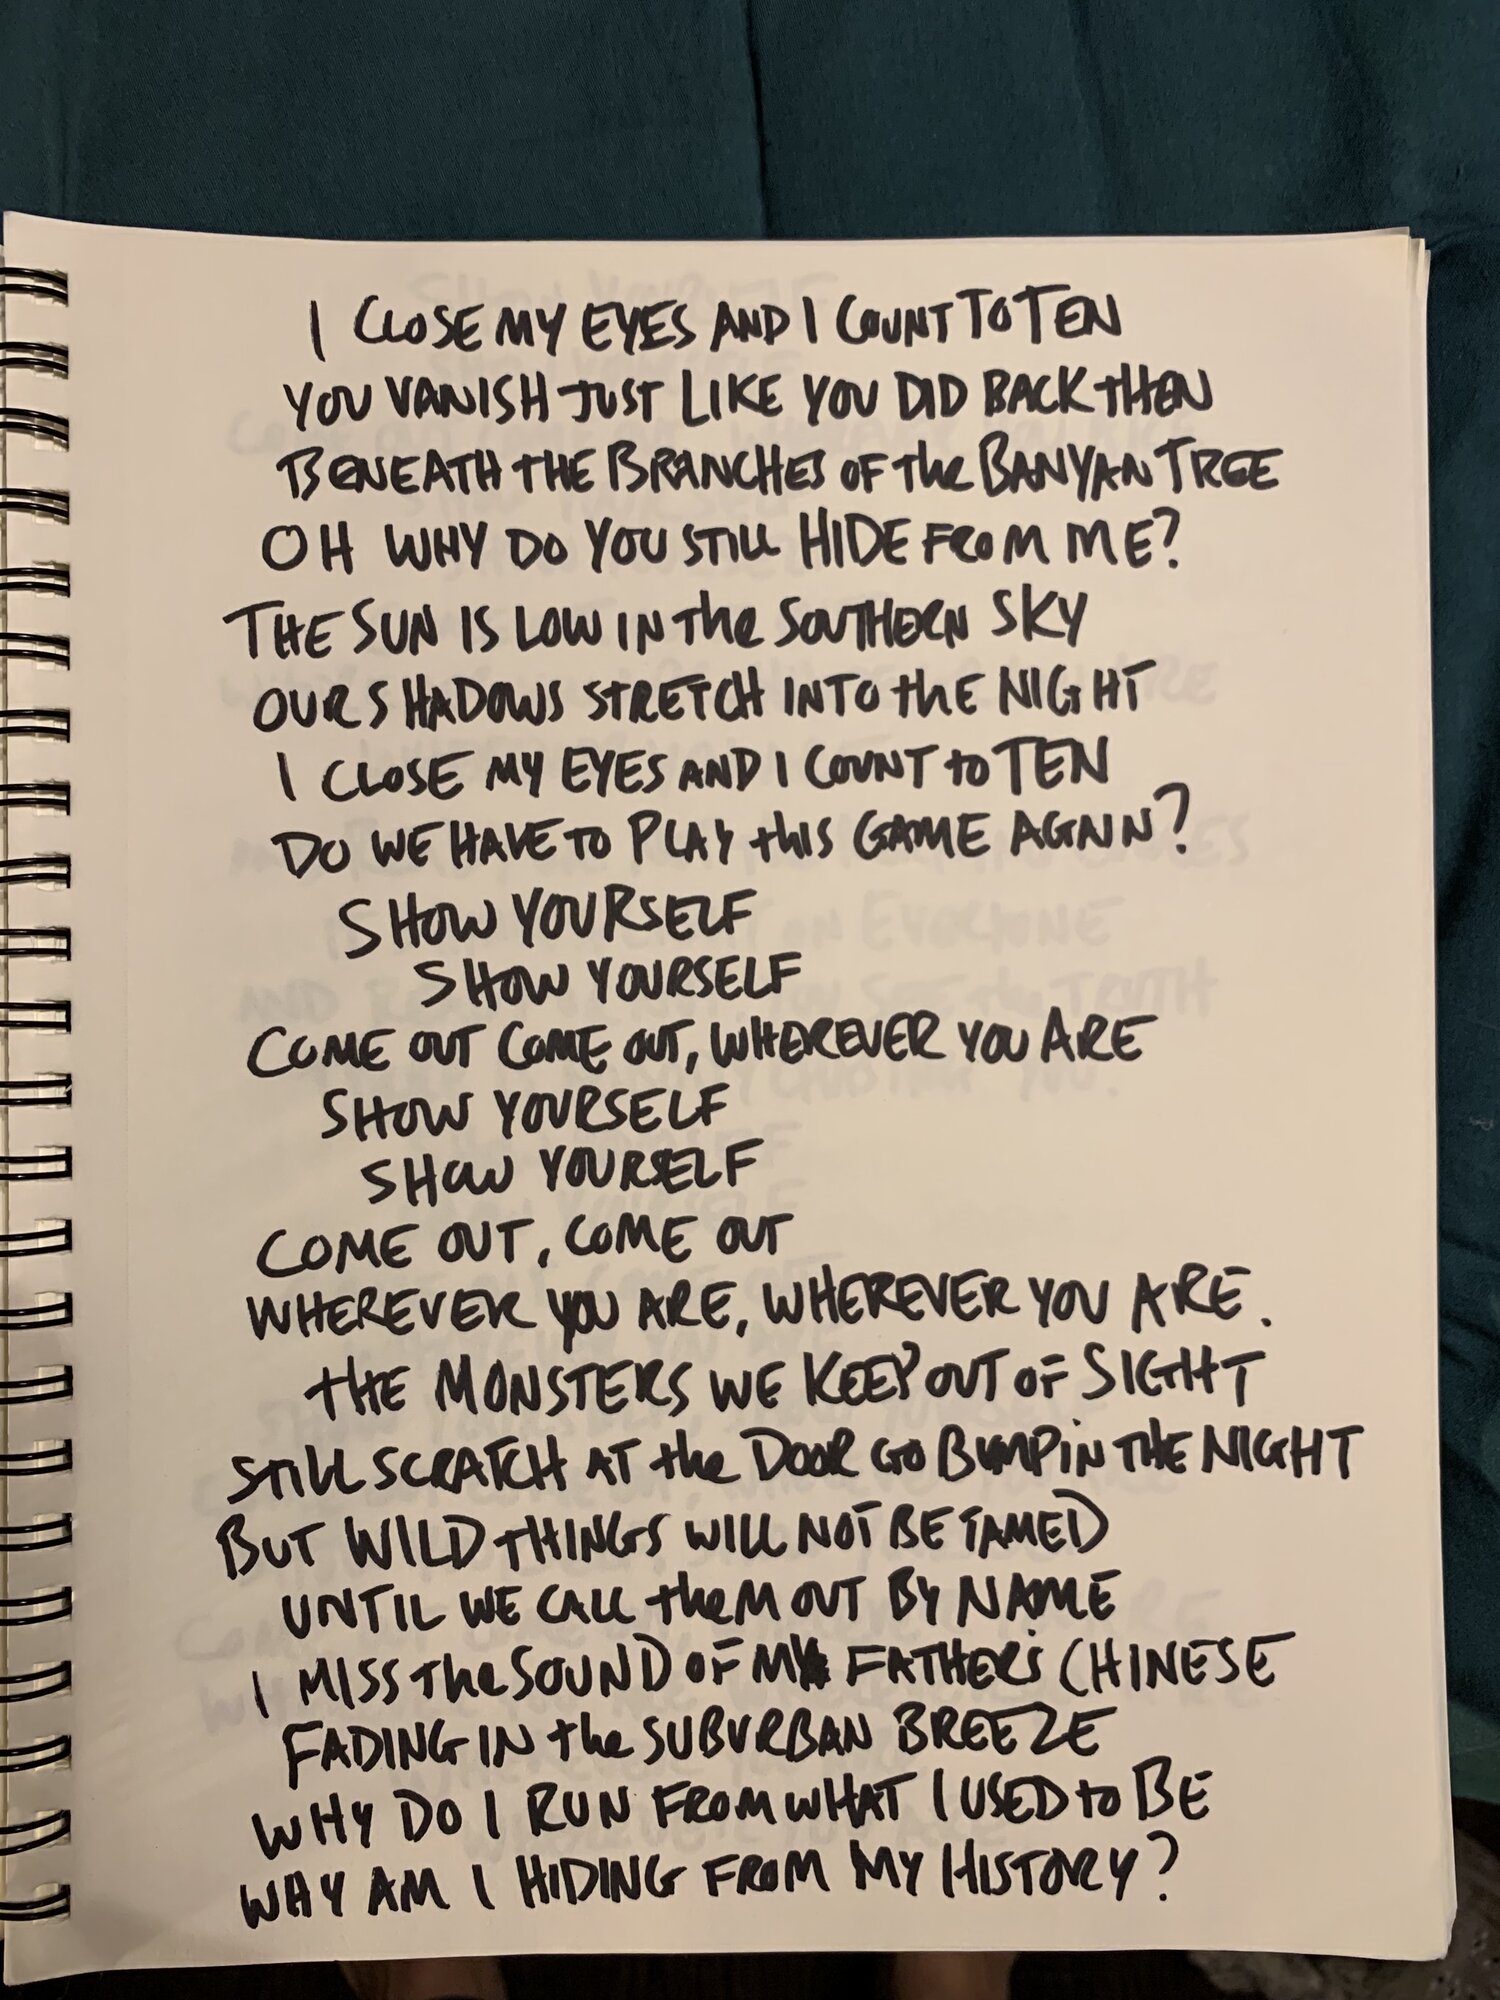 I CLOSE MY EYES AND I COUNT TO TEN
YOU VANISH JUST LIKE YOU DID BACK THEN
BENEATH THE BRANCHES OF the BANYAN TREE
OH WHY DO YOU STILL HIDE FROM ME?
THE SUN IS LOW IN the SOUTHERN SKY
OUR SHADOWS STRETCH INTO thE NIGHT
I CLOSE MY EYES AND I COUNT to TEN
DO WE HAVE TO PLAY thIS GAME AGAIN?
SHOW YOURSELF
SHOW YOURSELF
COME OUT COME OUT, WHEREVER YOU ARE
SHOW YOURSELF
SHOW YOURSELF
COME OUT, COME OUT
WHEREVER YOU ARE, WHEREVER YOU ARE.
tHE MONSTERS WE KEEP OUT OF SIGHT
STILL SCRATCH AT the DOOR GO BUMP iN THE NIGHT
BUT WILD tHINGS WILL NOT BE TAMED
UNTIL WE CALL theM OUT BY NAME
I MISS the SOUND OF MY FATHER'S CHINESE
FADING IN the SUBURBAN BREEZE
WHY DO I RUN FROM WHAT I USED to BE
WHY AM I HIDING FROM MY HISTORY?